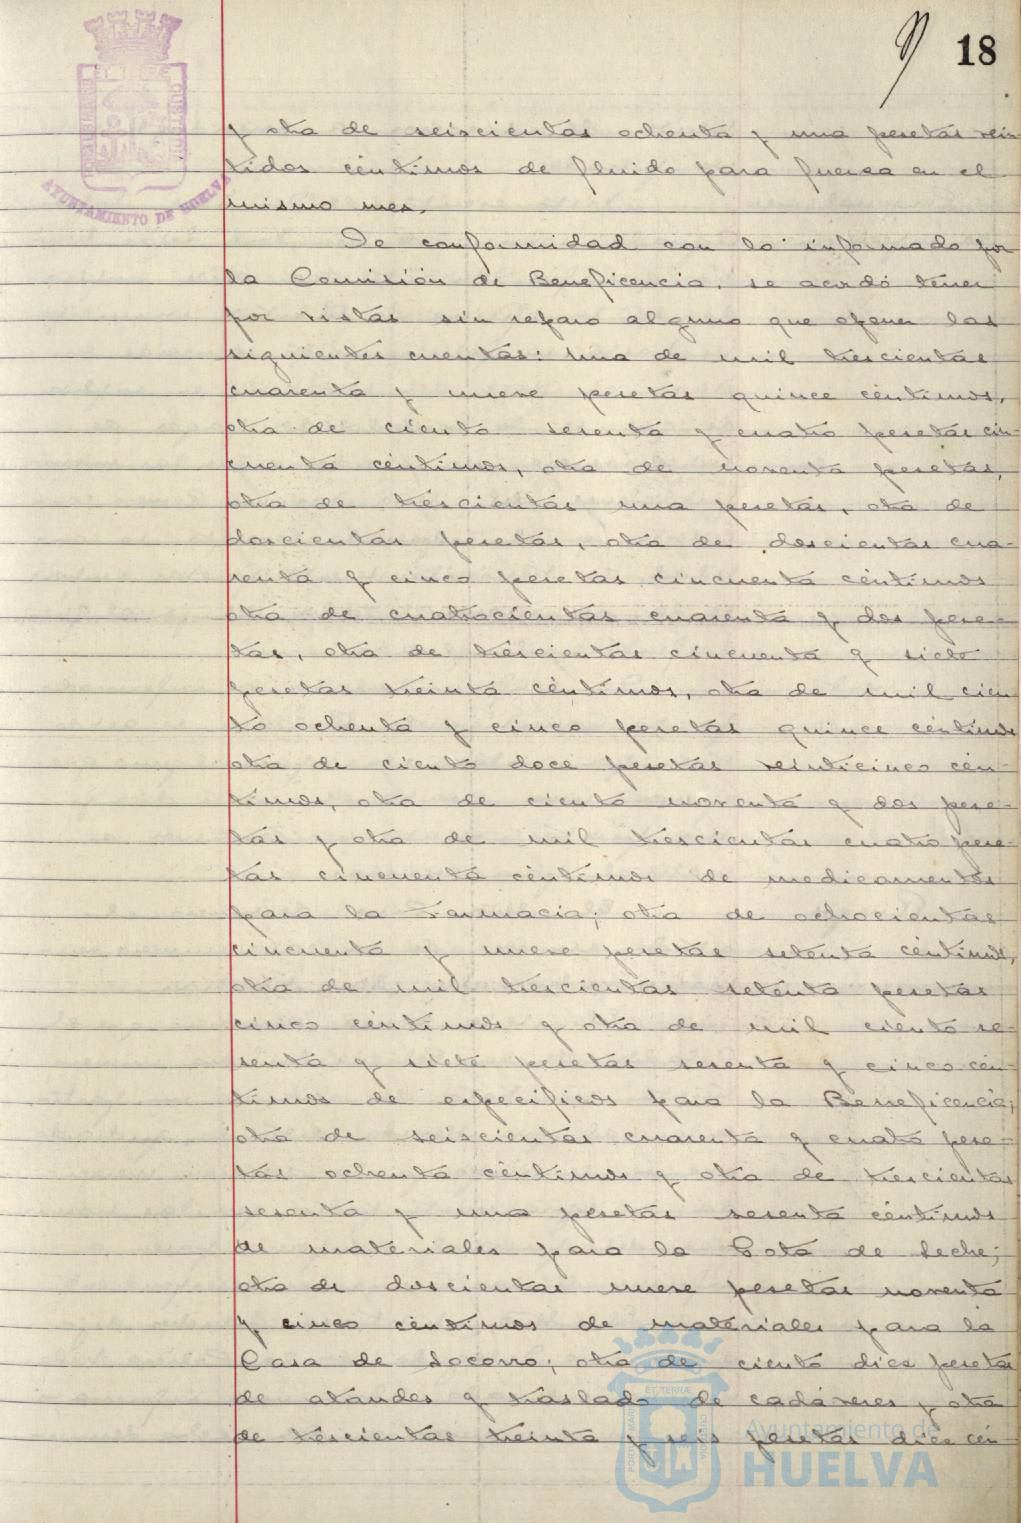 18
AYUNTAMIENTO DE HUELVA
y otra de seiscientas ochenta y una pesetas vein
tidos céntimos de fluido para fuerza en el
mismo mes.
De conformidad con lo informado por
la Comisión de Beneficencia, se acordó tener
por vistas sin reparo alguno que oponer las
siguientes cuentas: Una de mil trescientas
cuarenta y nueve pesetas quince céntimos,
otra de ciento sesenta y cuatro pesetas cin-
cuenta céntimos, otra de noventa pesetas,
otra de trescientas una pesetas, otra de
doscientas pesetas, otra de doscientas cua-
renta y cinco pesetas cincuenta céntimos
otra de cuatrocientas cuarenta y dos pese-
tas, otra de trescientas cincuenta y siete
pesetas treinta céntimos, otra de mil cien
to ochenta y cinco pesetas quince céntimos
otra de ciento doce pesetas veinticinco cén-
timos, otra de ciento noventa y dos pese-
tas y otra de mil trescientas cuatro pese-
tas cincuenta céntimos de medicamentos
para la Farmacia; otra de ochocientas
cincuenta y nueve pesetas setenta céntimos,
otra de mil trescientas setenta pesetas
cinco céntimos y otra de mil ciento se-
senta y siete pesetas sesenta y cinco cén-
timos de específicos para la Beneficencia;
otra de seiscientas cuarenta y cuatro pese-
tas ochenta céntimos y otra de trescientas
sesenta y una pesetas sesenta céntimos
de materiales para la Gota de Leche;
otra de doscientas nueve pesetas noventa
y cinco céntimos de materiales para la
Casa de Socorro; otra de ciento diez pesetas
de ataudes y traslado de cadáveres y otra
de trescientas treinta y seis pesetas diez cén-
Ayuntamiento de
HUELVA